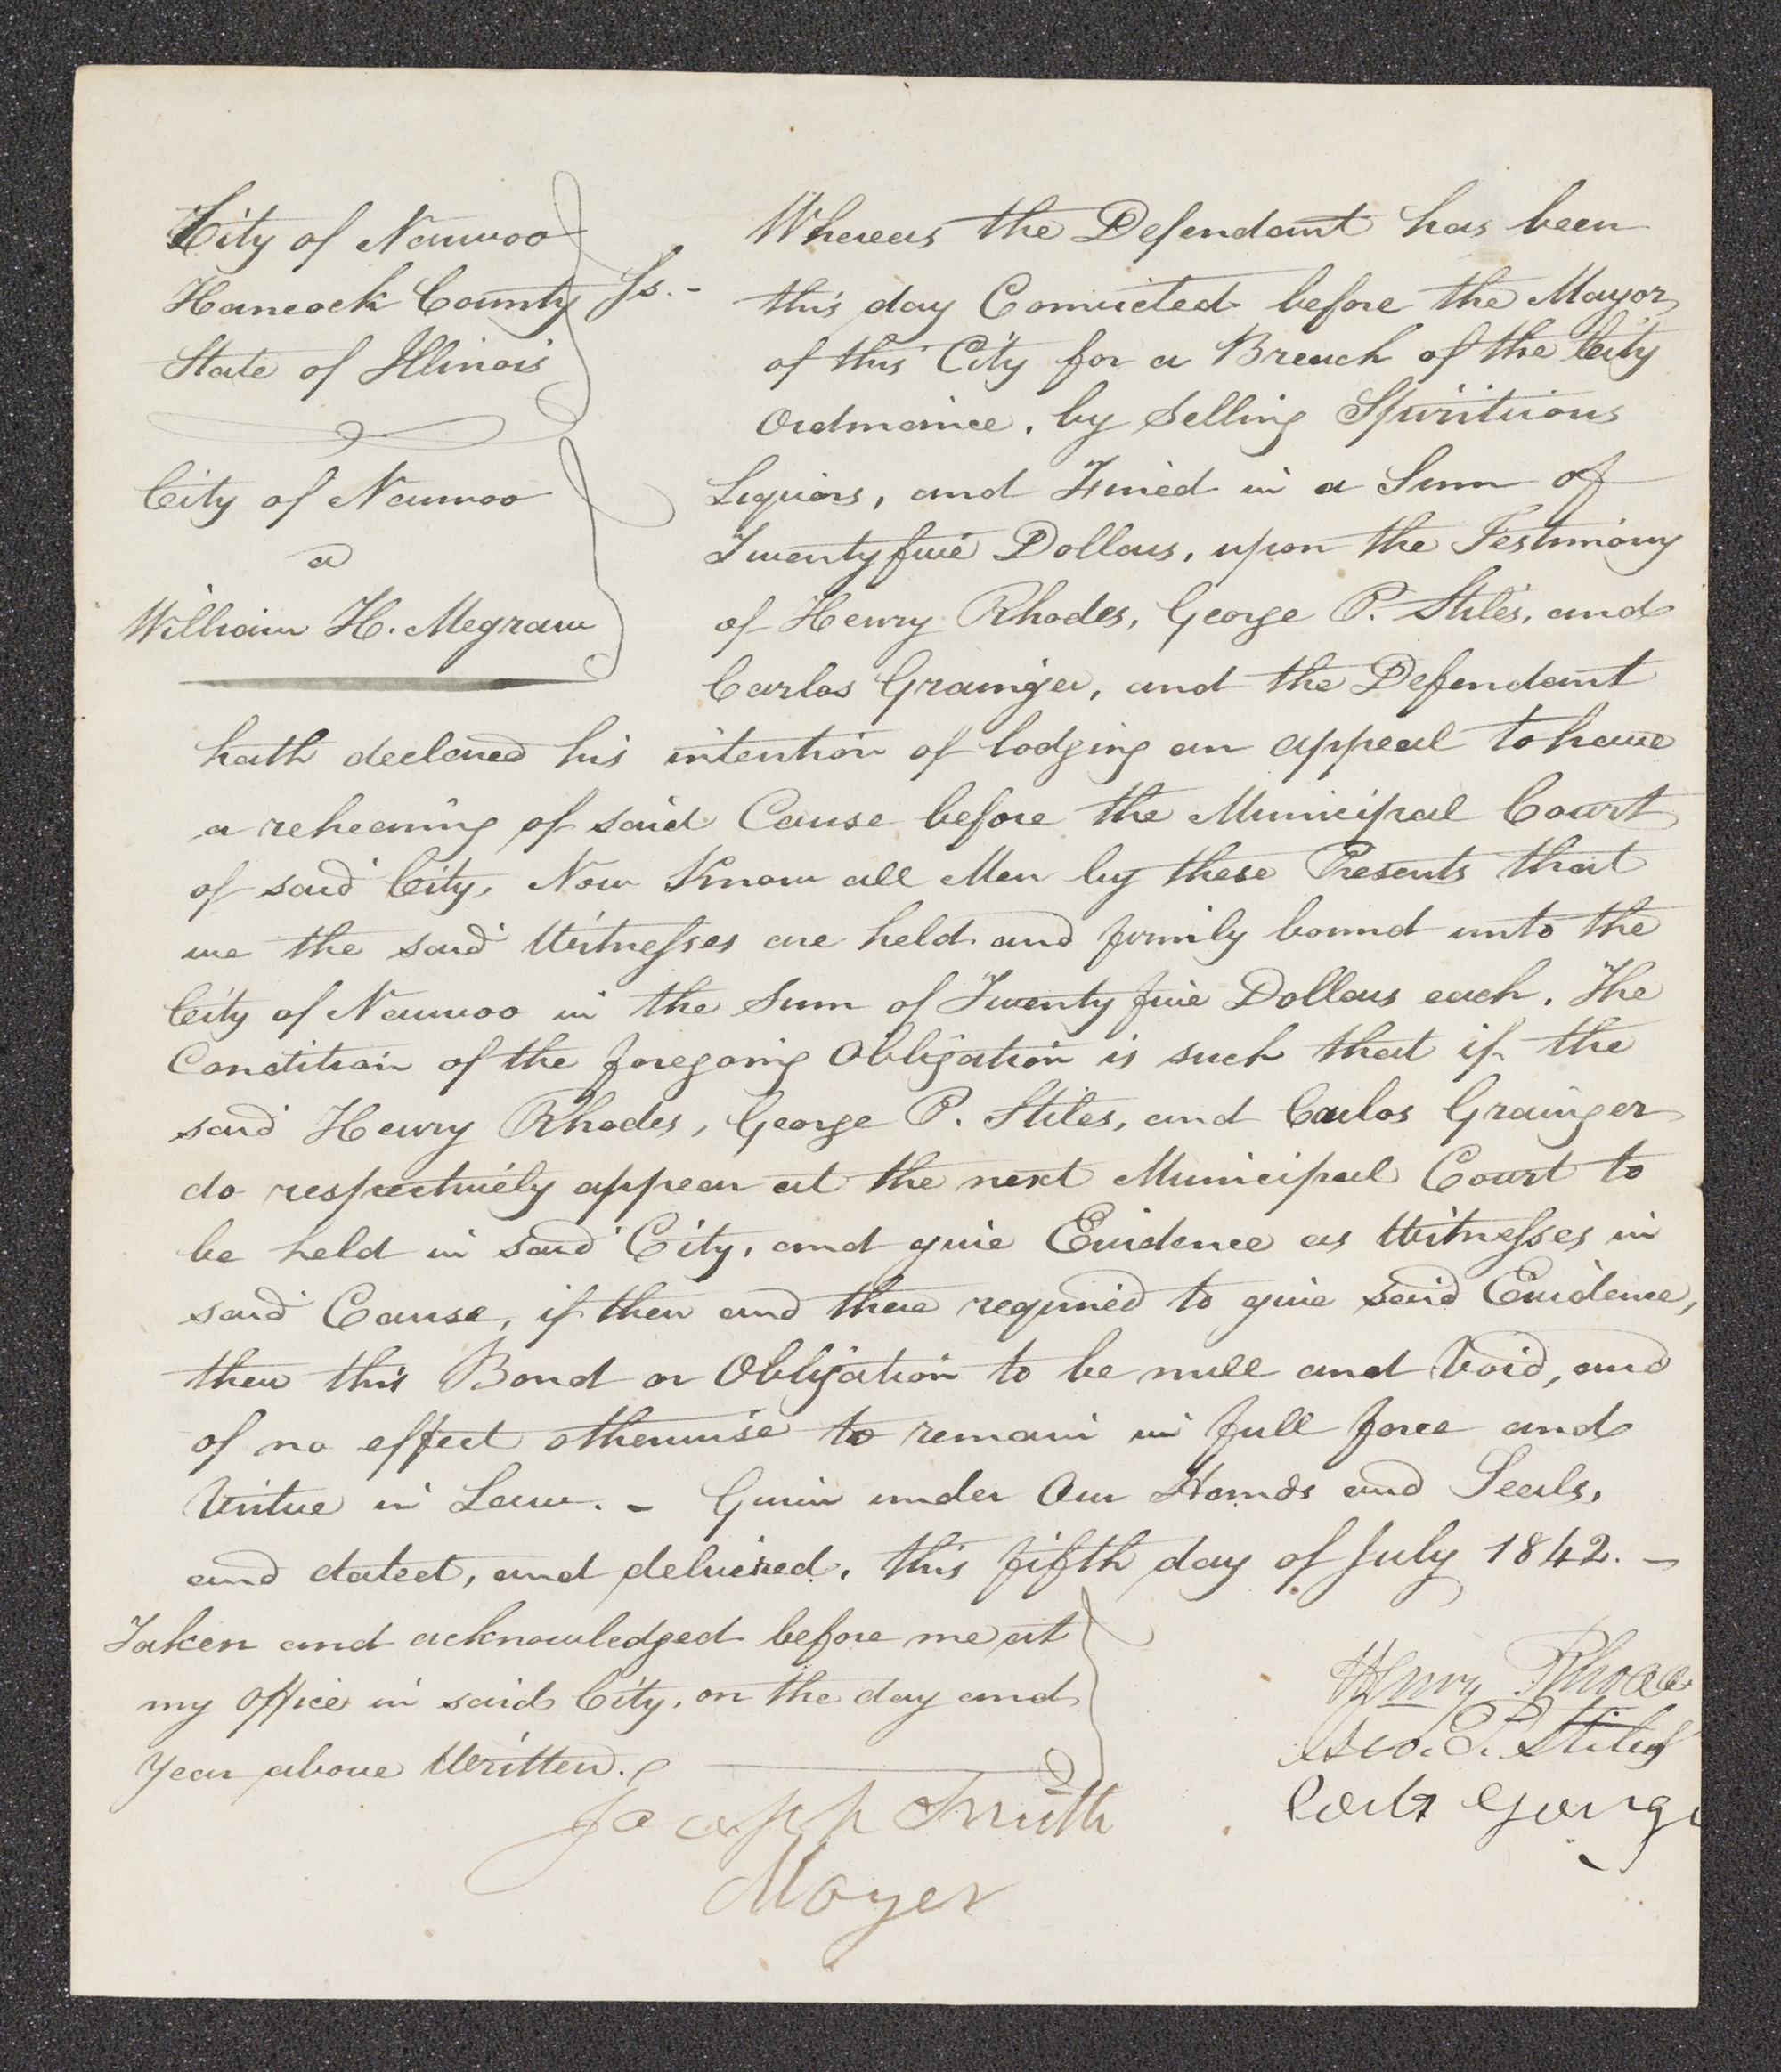 City of Nauvoo
Hancock County Ss.-
State of Illinois
City of Nauvoo
a
William H. Megraw
Whereas the Defendant has been
this day Convicted before the Mayor
of this City for a Breach of the City
Ordinance, by Selling Spirituous
Liquors, and Fined in a Sum of
Twentyfive Dollars, upon the Testimony
of Henry Rhodes, George P. Stiles, and
Carlos Grainger, and the Defendant
hath declared his intention of lodging an appeal to have
a rehearing of said Cause before the Municipal Court
of said City, Now Know all Men by these Presents that
we the said Witnesses are held and firmly bound unto the
City of Nauvoo in the Sum of Twenty five Dollars each. The
Condition of the foregoing Obligation is such that if the
said Henry Rhodes, George P. Stiles, and Carlos Grainger
do respectively appear at the next Municipal Court to
be held in said City, and give Evidence as Witnesses in
said Cause, if then and there required to give said Evidence,
then this Bond or Obligation to be null and Void, and
of no effect otherwise to remain in full force and
Virtue in Law. - Given under Our Hands and Seals,
and dated, and delivered, this fifth day of July 1842. -
Taken and acknowledged before me at
my Office in said City, on the day and
Year above Written.
Henry
Geo. P. Stiles
Joseph Smith
Mayer